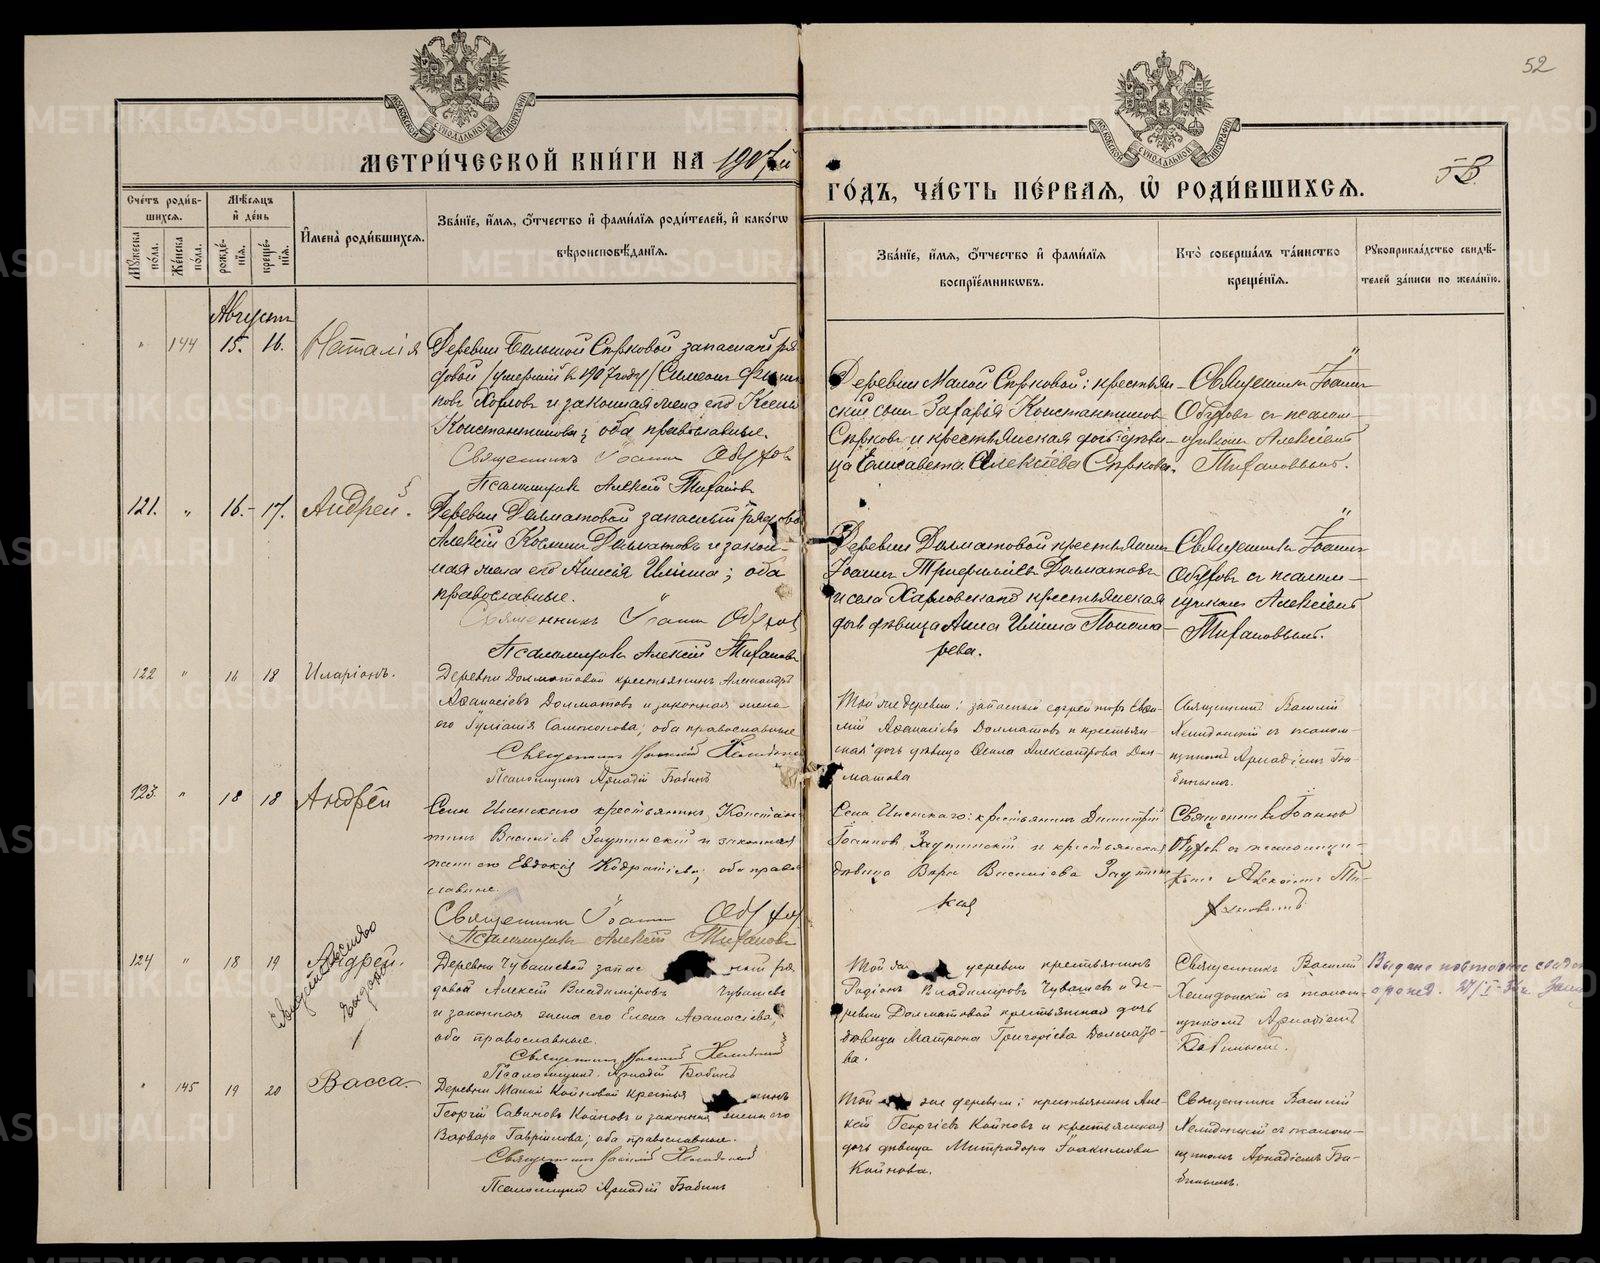 52
МЕТРИ́ЧЕСКОЙ КНИ́ГИ НА 1907й
ГО́ДЪ, ЧА́СТЬ ПЕ́РВАѦ, Ѽ РОДИ́ВШИХСѦ.
Счетъ роди́в-
шихсѧ.
Мꙋжеска по́ла.
Же́нска по́ла.
Мѣ́сѧцъ
и҆ де́нь
рожде́-нїѧ.
креще́-нїѧ.
И҆мена̀ роди́вшихсѧ.
Зва́нїе, и҆́мѧ, ѻ҆́тчество и҆ фами́лїѧ роди́телей, и҆ како́гѡ
вѣроисповѣ́данїѧ.
Зва́нїе, и҆́мѧ, ѻ҆́тчество и҆ фами́лїѧ
воспрїе́мникѡвъ.
Кто̀ соверша́лъ та́инство
креще́нїѧ.
Рꙋкоприкла́дство свидѣ́-
телей за́писи по жела́нїю.
Августъ
" 144 15. 16. Наталія
Деревни Большой Сѣрковой запасный ря
довой /умершій въ 1907 году/ Симеонъ
повъ Хорловъ и законная жена его Ксенія
Константинова; оба православные.
Священникъ Іоаннъ Обуховъ
Псаломщикъ Алексій Тихановъ
Деревни Малой Сѣрковой: крестьян-
скій сынъ Захарія Константиновъ
Сѣрковъ и крестьянская дочь дѣви-
ца Елисавета Алексіева Сѣркова.
Священникъ Іоаннъ
Обуховъ съ псалом-
щикомъ Алексіемъ
Тихановымъ.
121. " 16.- 17. Андрей.
Деревни Долматовой запасный рядовой
Алексій Косминъ Долматовъ и закон-
ная жена его Анисія Ильина; оба
православные.
Священникъ Іоаннъ Обуховъ
Псаломщикъ Алексій Тихановъ
Деревни Долматовой крестьянинъ
Іоаннъ Трифиліевъ Долматовъ
и села Харловскаго крестьянская
дочь дѣвица Анна Ильина Понома-
рева.
Священникъ Іоаннъ
Обуховъ съ псалом-
щикомъ Алексіемъ
Тихановымъ.
122 " 16 18 Иларіонъ.
Деревни Долматовой крестьянинъ Александръ
Афанасіевъ Долматовъ и законная жена
его Іуліанія Самсонова, оба православные
Священникъ Василій Хелидонскій
Псаломщикъ Аркадій Бабинъ
Той же деревни: запасный ефрейторъ Евфи-
мій Афанасіевъ Долматовъ и крестьян-
ская дочь дѣвица Александрова Дол-
матова
Священникъ Василій
Хелидонскій съ псалом-
щикомъ Аркадіемъ Ба-
бинымъ.
123. " 18 18 Андрей
Села крестьянинъ Констан-
тинъ Василіевъ и законная
жена его Евдокія Кодратіева; оба право-
славные.
Священникъ Іоаннъ Обуховъ
Псаломщикъ Алексій Тихановъ
Села крестьянинъ Димитрій
Іоанновъ и крестьянская
дѣвица Вера Василіева
кая
Священникъ Іоаннъ
Обуховъ съ псаломщи-
комъ Алексіемъ Ти-
хановымъ
124 " 18 19 Андрей.
Свидѣтельство
выдано
Деревни Чувашевой запас ный ря
довой Алексій Владиміровъ Чувашевъ
и законная жена его Елена Афанасіева,
оба православные.
Священникъ Василій Хелидонскій
Псаломщикъ Аркадій Бабинъ
Той же деревни крестьянинъ
Родіонъ Владиміровъ Чувашевъ и де-
ревни Долматовой крестьянская дочь
дѣвица Матрона Григоріева Долмато-
ва.
Священникъ Василій
Хелидонскій съ псалом-
щикомъ Аркадіемъ
Бабинымъ.
Выдано повторное
" 145 19 20 Васса
Деревни Малой Койновой крестья нинъ
Георгій Савиновъ Койновъ и законная жена его
Варвара Гавріилова; оба православные.
Священникъ Василій Хелидонскій
Псаломщикъ Аркадій Бабинъ
Той же деревни: крестьянинъ Але-
ксій Георгіевъ Койновъ и крестьянская
дочь дѣвица Митродора Іоакимова
Койнова.
Священникъ Василій
Хелидонскій съ псалом-
щикомъ Аркадіемъ Ба-
бинымъ.
METRIKI.GASO-URAL.RU